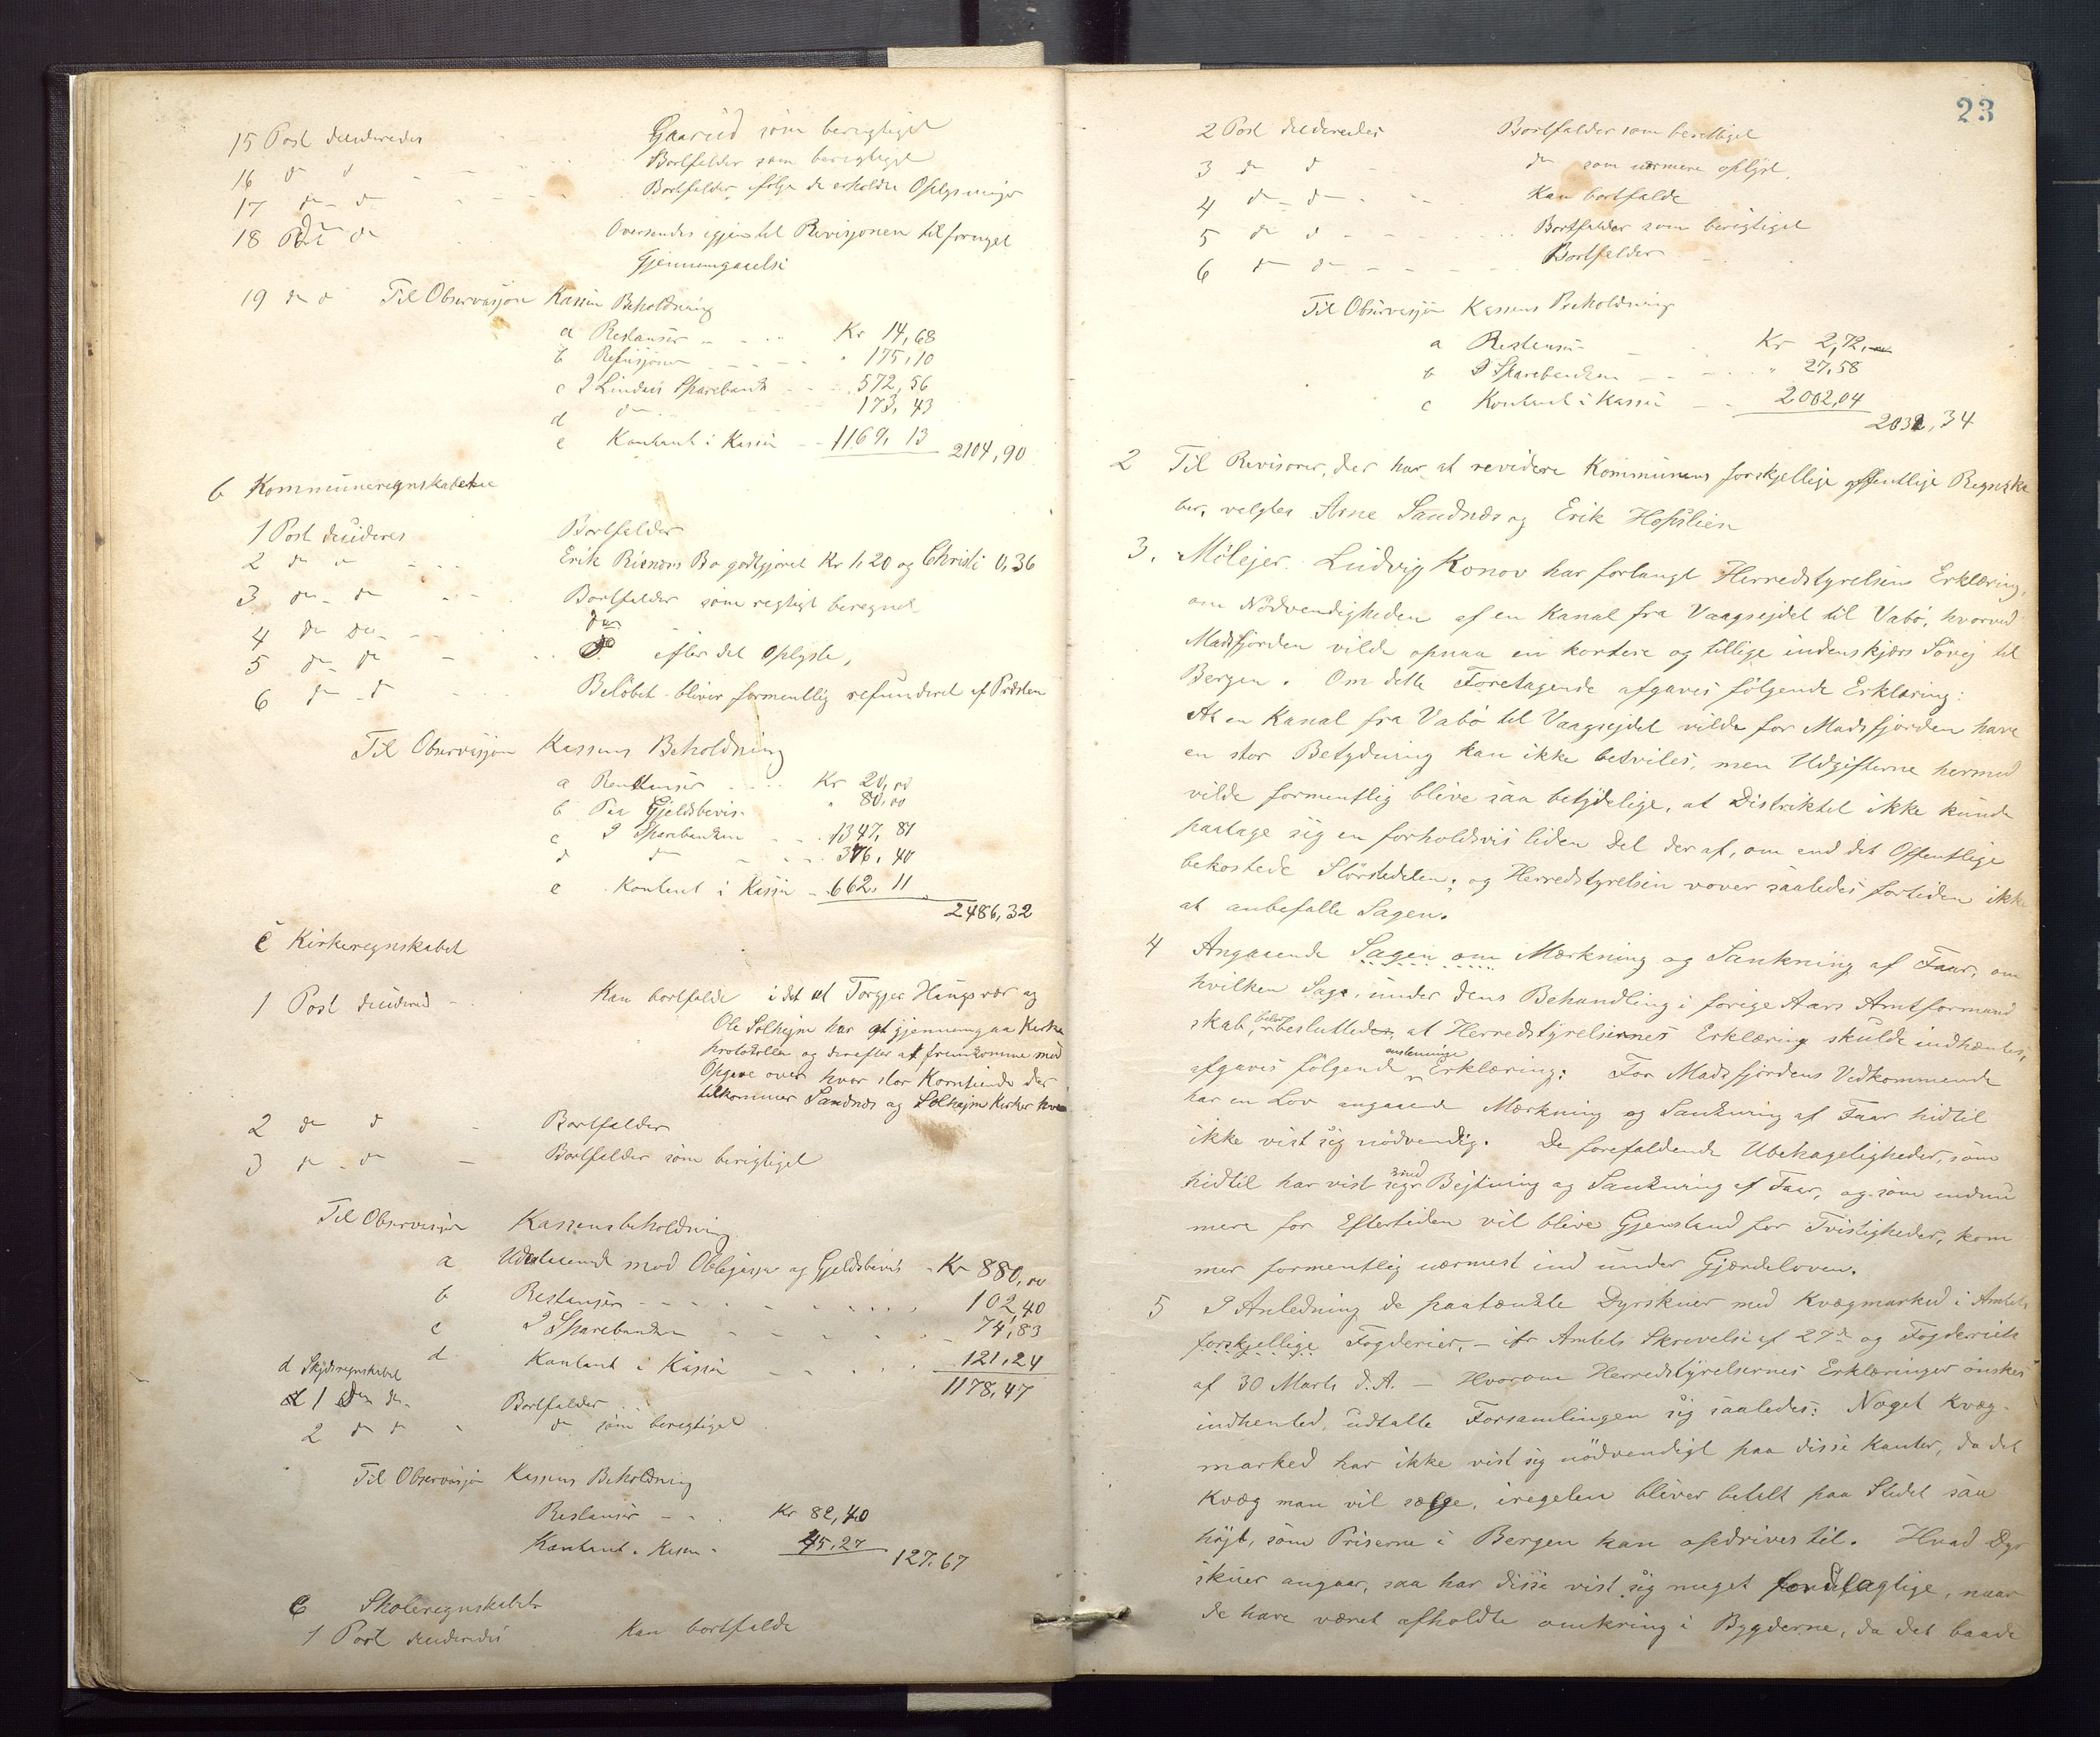 15 Post desideredes Gaarud som berigtiget
16 do do Bortfalder som berigtiget
17 do do Bortfalder ifølge de erholdte Oplysninger
18 do do Oversendes igjen til Revisjonen til fornyet
Gjennemgaaelse
19 do do Til Observasjon Kassens Beholdning
a Restanser Kr 14,68
b Refusjoner " 175,10
c I Lindaas Sparebank 572,56
d do 173,43
e Kontant i Kassen 1169,13 2104,90
b Kommuneregnskabet
1 Post desideres Bortfalder
2 do do Erik Risnæs Bo godtgjøres Kr 1,20 og Christi 0,36
3 do do Bortfalder som regtigt beregnet
4 do do do
5 do do do efter det Oplyste,
6 do do Beløbet bliver formentlig refunderet af Præsten
Til Observasjon Kassens Beholdning
a Restanser Kr 20,00
b Paa Gjeldsbevis " 80,00
c I Sparebanken 1347,81
d do 376,40
e Kontant i Kassen 662,11
2486,32
c Kirkeregnskabet
1 Post desidered Kan bortfalde i det at Torgjer Haugsvær og
Ole Solhejm har at gjennemgaa Kirke
protokollen og derefter at fremkomme med
Opgave over hvor stor Korntiende der
tilkommer Sandnæs og Solhejm Kirker hver
2 do do Bortfalder
3 do do Bortfalder som berigtiget
Til Observasjon Kassensbeholdning
a Udestaaende mod Obligasjon og Gjeldsbevis Kr 880,00
b Restanser 102,40
c I Sparebanken 74,83
d Kontant i Kassen 121,24
1178,47
d Skydsregnskabet
1 do do Bortfalder
2 do do do som berigtiget
Til Observasjon Kassens Beholdning
Restanser Kr 82,40
Kontant i Kassen 45,27 127,67
e Skoleregnskabet
1 Post desideredes Kan bortfalde
23
2 Post desideredes Bortfalder som berettiget
3 do do do som nærmere oplyst.
4 do do Kan bortfalde
5 do do Bortfalder som berigtiget
6 do do Bortfalder
Til Observasjon Kassens Beholdning
a Restanser Kr 2,72
b I Sparebanken " 27,58
c Kontant i Kassen 2002,04
2032,34
2 Til Revisorer, der har at revidere Kommunens forskjellige offentlige Regnska
ber, valgtes Arne Sandnæs og Erik Hopslien
3. Mølejer Ludvig Konov har forlangt Herredstyrelsens Erklæring,
om Nødvendigheden af en Kanal fra Vaagsejdet til Vabø, hvorved
Masfjorden vilde opnaa en kortere og tillige indenskjærs Søvej til
Bergen. Om dette Foretagende afgaves følgende Erklæring:
At en Kanal fra Vabø til Vaagsejdet vilde for Masfjorden have
en stor Betydning kan ikke betviles, men Udgifterne hermed
vilde formentlig blive saa betydelige, at Distriktet ikke kunde
paatage sig en forholdsvis liden Del der af, om end det Offentlige
bekostede Størstedelen; og Herredstyrelsen vover saaledes fortiden ikke
at anbefalle Sagen.
4 Angaaende Sagen om Mærkning og Sankning af Faar, om
hvilken Sag, under dens Behandling i forige Aars Amtformand
skab, blev besluttede, at Herredstyrelsernes Erklæring skulde indhæntes,
afgaves følgende enstemmige Erklæring: For Masfjordens Vedkommende
har en Lov angaaende Mærkning og Sankning af Faar hidtil
ikke vist sig nødvendig. De forefaldende Ubehageligheder, som
hidtil har vist sig ved Bejtning og Sankning af Faar, og som endnu
mere for Eftertiden vil blive Gjenstand for Tvistigheder, kom
mer formentlig nærmest ind under Gjærdeloven.
5 I Anledning de paatænkte Dyrskuer med Kvægmarked i Amtets
forskjellige Fogderier, – ifr Amtets Skrevelse af 27de og Fogderiets
af 30 Marts d.A. – Hvorom Herredstyrelsernes Erklæringer ønskes
indhented, udtalte Forsamlingen sig saaledes: Noget Kvæg-
marked har ikke vist sig nødvendigt paa disse Kanter, da det
Kvæg man vil sælge, iregelen bliver betalt paa Stedet saa
højt, som Priserne i Bergen kan opdrives til. Hvad Dyr
skuer angaar, saa har disse vist sig meget fordelagtige, naar
de have været afholdte omkring i Bygderne, da det baade